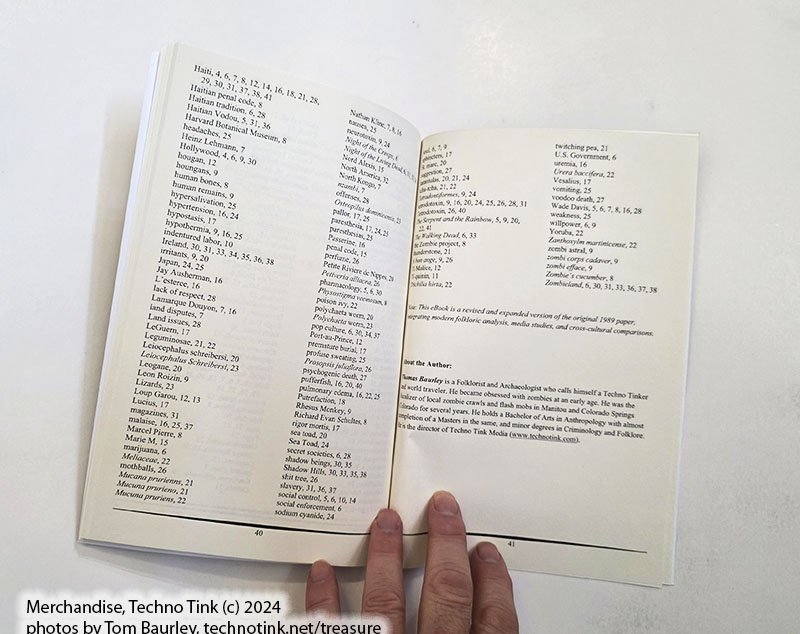 Haiti, 4, 6, 7, 8, 12, 14, 16, 18, 21, 28,
29, 30, 31, 37, 38, 41
Haitian penal code, 8
Haitian tradition. 6, 28
Haitian Vodou, 5, 31, 36
Harvard Botanical Museum, 8
headaches, 25
Heinz Lehmann, 7
Hollywood, 4, 6, 9, 30
hougan, 12
houngans, 9
human bones, 8
human remains, 9
hypersalivation, 25
hypertension, 16, 24
hypostasis, 17
hypothermia, 9, 16, 25
indentured labor, 10
Ireland, 30, 31, 33, 34, 35, 36, 38
irritants, 9, 20
Japan, 24, 25
Jay Ausherman, 16
L'esterce, 16
lack of respect, 28
Lamarque Douyon, 7, 16
land disputes, 7
Land issues, 28
LeGuern, 17
Leguminosae, 21, 22
Leiocephalus schreibersi, 20
Leiocephalus Schreibersi, 23
Leogane, 20
Leon Roizin, 9
Lizards, 23
Loup Garou, 12, 13
Lucius, 17
magazines, 31
malaise, 16, 25, 37
Marcel Pierre, 8
Marie M, 15
marijuana, 6
Meliaceae, 22
mothballs, 26
Mucana prurienns, 21
Mucuna prurieno, 21
Mucuna pruriens, 22
Nathan Kline, 7, 8, 16
nausea, 25
neurotoxin, 9, 24
Night of the Creeps, 6
Night of the Living Dead, 6,
Nord Alexis, 15
North America, 32
North Kongo, 7
nzambi, 7
offenses, 28
Osteopilus dominicensis, 23
pallor. 17, 25
paresthesia, 17, 24, 25
paresthesias, 25
Passerine, 16
penal code, 15
perfume, 26
Petite Riviere de Nippes, 28
Petiveria alliacea, 26
pharmacology, 5, 6, 30
Physostigma venenosum, 8
poison ivy, 22
polychaeta worm, 20
Polychaeta worms, 23
pop culture, 6, 30, 34, 37
Port-au-Prince, 12
premature burial, 17
profuse sweating, 25
Prosopis juliaflora, 26
psychogenic death, 27
pufferfish, 16, 20, 40
pulmonary edema, 16, 22, 25
Putrefaction, 18
Rhesus Monkey, 9
Richard Evan Schultes, 8
rigor mortis, 17
sea toad, 20
Sea Toad, 24
secret societies, 6, 28
shadow beings, 30, 35
Shadow Hills, 30, 33, 35, 38
shit tree, 26
slavery, 31, 36, 37
social control, 5, 6, 10, 14
social enforcement, 6
sodium cyanide, 24
40
6, 7, 9
17
marc, 20
27
20, 21, 24
21, 22
9, 24
9, 16, 20, 24, 25, 26, 28, 31
26, 40
Serpent and the Rainbow, 5, 9, 20,
22, 41
Walking Dead, 6, 33
Zombie project, 8
21
ange, 9, 26
Malice, 12
11
hirta, 22
twitching pea, 21
U.S. Government, 6
uremia, 16
Urera baccifera, 22
Vesalius, 17
vomiting, 25
voodoo death, 27
Wade Davis, 5, 6, 7, 8, 16, 28
weakness, 25
willpower, 6, 9
Yoruba, 22
Zanthoxylm martinicense, 22
zombi astral, 9
zombi corps cadaver, 9
zombi efface, 9
Zombie's cucumber, 8
Zombieland, 6, 30, 31, 33, 36, 37, 38
This eBook is a revised and expanded version of the original 1989 paper,
integrating modern folkloric analysis, media studies, and cross-cultural comparisons.
About the Author:
Thomas Baurley is a Folklorist and Archaeologist who calls himself a Techno Tinker
and world traveler. He became obsessed with zombies at an early age. He was the
of local zombie crawls and flash mobs in Manitou and Colorado Springs
Colorado for several years. He holds a Bachelor of Arts in Anthropology with almost
completion of a Masters in the same, and minor degrees in Criminology and Folklore.
He is the director of Techno Tink Media (www.technotink.com).
41
Merchandise, Techno Tink (c) 2024
photos by Tom Baurley, technotink.net/treasure